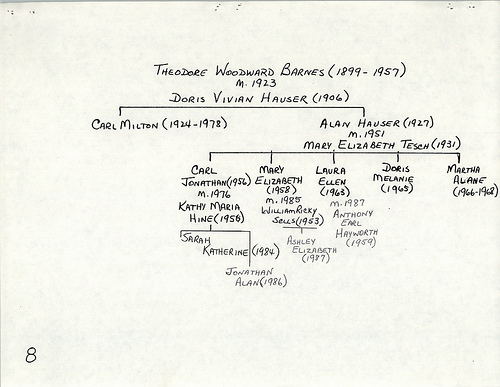 THEODORE WOODWARD BARNES (1899-1957)
M. 1923
DORIS VIVIAN HAUSER (1906)
CARL MILTON (1924-1978)
ALAN HAUSER (1927)
M. 1951
MARY ELIZABETH TESCH (1931)
CARL
JONATHAN (1956)
M. 1976
KATHY MARIA
HINE (1956)
MARY
ELIZABETH
(1958)
M. 1985
WILLIAM RICKY
SELLS (1953)
LAURA
ELLEN
(1963)
M. 1987
ANTHONY
EARL
HAYWORTH
(1959)
DORIS
MELANIE
(1965)
MARTHA
ALANE
(1966-1968)
SARAH
KATHERINE (1984)
JONATHAN
ALAN (1986)
ASHLEY
ELIZABETH
(1987)
8